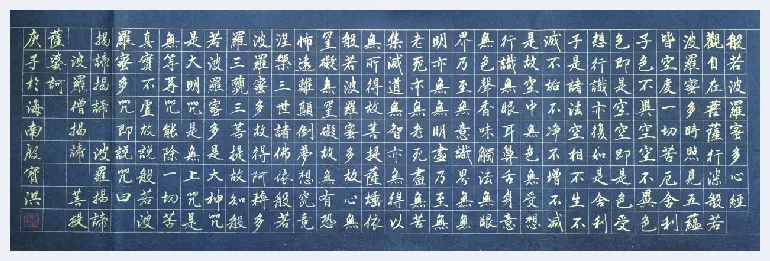 般若波羅蜜多心經
觀自在菩薩行深般若
波羅蜜多時照見五蘊
皆空度一切苦厄舍利
子色不異空空不異色
色即是空空即是色受
想行識亦復如是舍利
子是諸法空相不生不
滅不垢不淨不增不減
是故空中無色無受想
行識無眼耳鼻舌身意
無色聲香味觸法無眼
界乃至無意識界無無
明亦無無明盡乃至無
老死亦無老死盡無苦
集滅道無智亦無得以
無所得故菩提薩埵依
般若波羅蜜多故心無
罣礙無罣礙故無有恐
怖遠離顛倒夢想究竟
涅槃三世諸佛依般若
波羅蜜多故得阿耨多
羅三藐三菩提故知般
若波羅蜜多是大神咒
是大明咒是無上咒是
無等等咒能除一切苦
真實不虛故說般若波
羅蜜多咒即說咒曰
揭諦揭諦 波羅揭諦
波羅僧揭諦 菩提
薩婆訶
庚子於海南殷寶洪